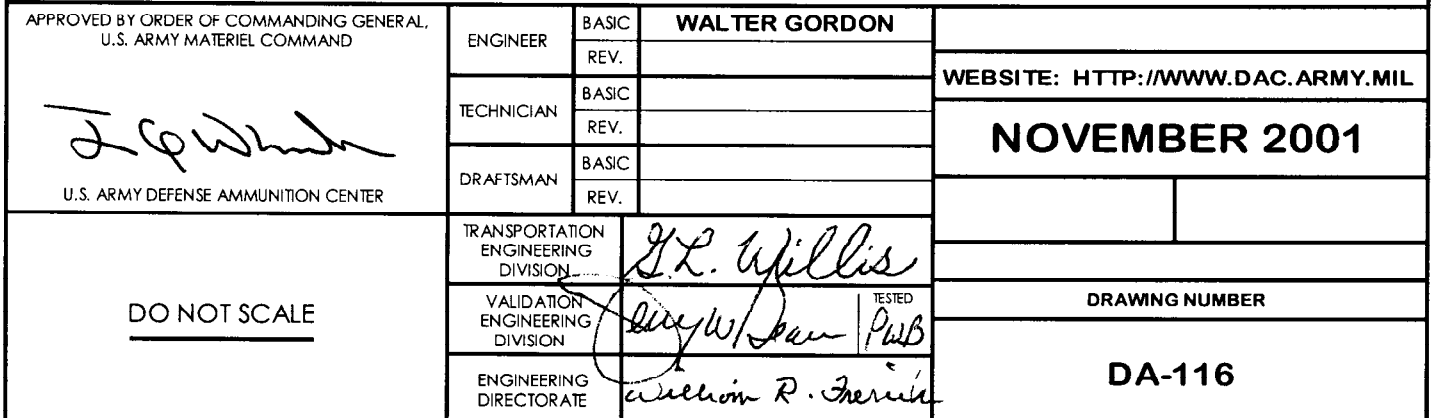 APPROVED BY ORDER OF COMMANDING GENERAL,
U.S. ARMY MATERIEL COMMAND
U.S. ARMY DEFENSE AMMUNITION CENTER
DO NOT SCALE
ENGINEER
BASIC
WALTER GORDON
REV.
TECHNICIAN
BASIC
REV.
DRAFTSMAN
BASIC
REV.
TRANSPORTATION
ENGINEERING
DIVISION
G.L. Willis
VALIDATION
ENGINEERING
DIVISION
W Dean
TESTED
PWB
ENGINEERING
DIRECTORATE
William R. Frerichs
WEBSITE: HTTP://WWW.DAC.ARMY.MIL
NOVEMBER 2001
DRAWING NUMBER
DA-116